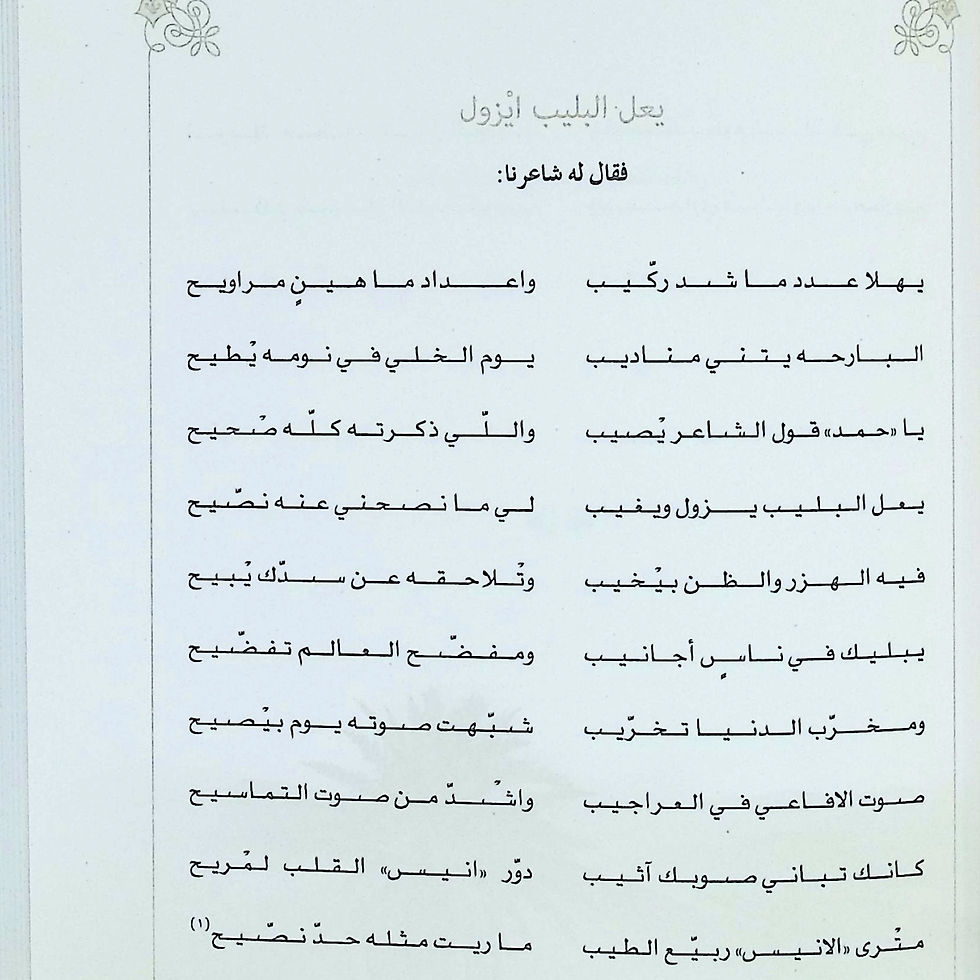 يعل البليب ايْزول
فقال له شاعرنا:
يهلا عدد ما شد ركّيب واعداد ما هينٍ مراويح
البارحه يتني مناديب يوم الخلي في نومه يْطيح
يا «حمد» قول الشاعر يْصيب واللّي ذكرته كلّه صْحيح
يعل البليب يزول ويغيب لي ما نصحني عنه نصّيح
فيه الهزر والظن بيْخيب وتْلاحقه عن سدّك يْبيح
يبليك في ناسٍ أجانيب ومفضّح العالم تفضّيح
ومخرّب الدنيا تخرّيب شبّهت صوته يوم بيْصيح
صوت الافاعي في العراجيب واشْدّ من صوت التماسيح
كانك تباني صوبك آثيب دوّر «انيس» القلب لمْريح
متْرى «الانيس» ربيّع الطيب ما ريت مثله حدّ نصّيح(١)